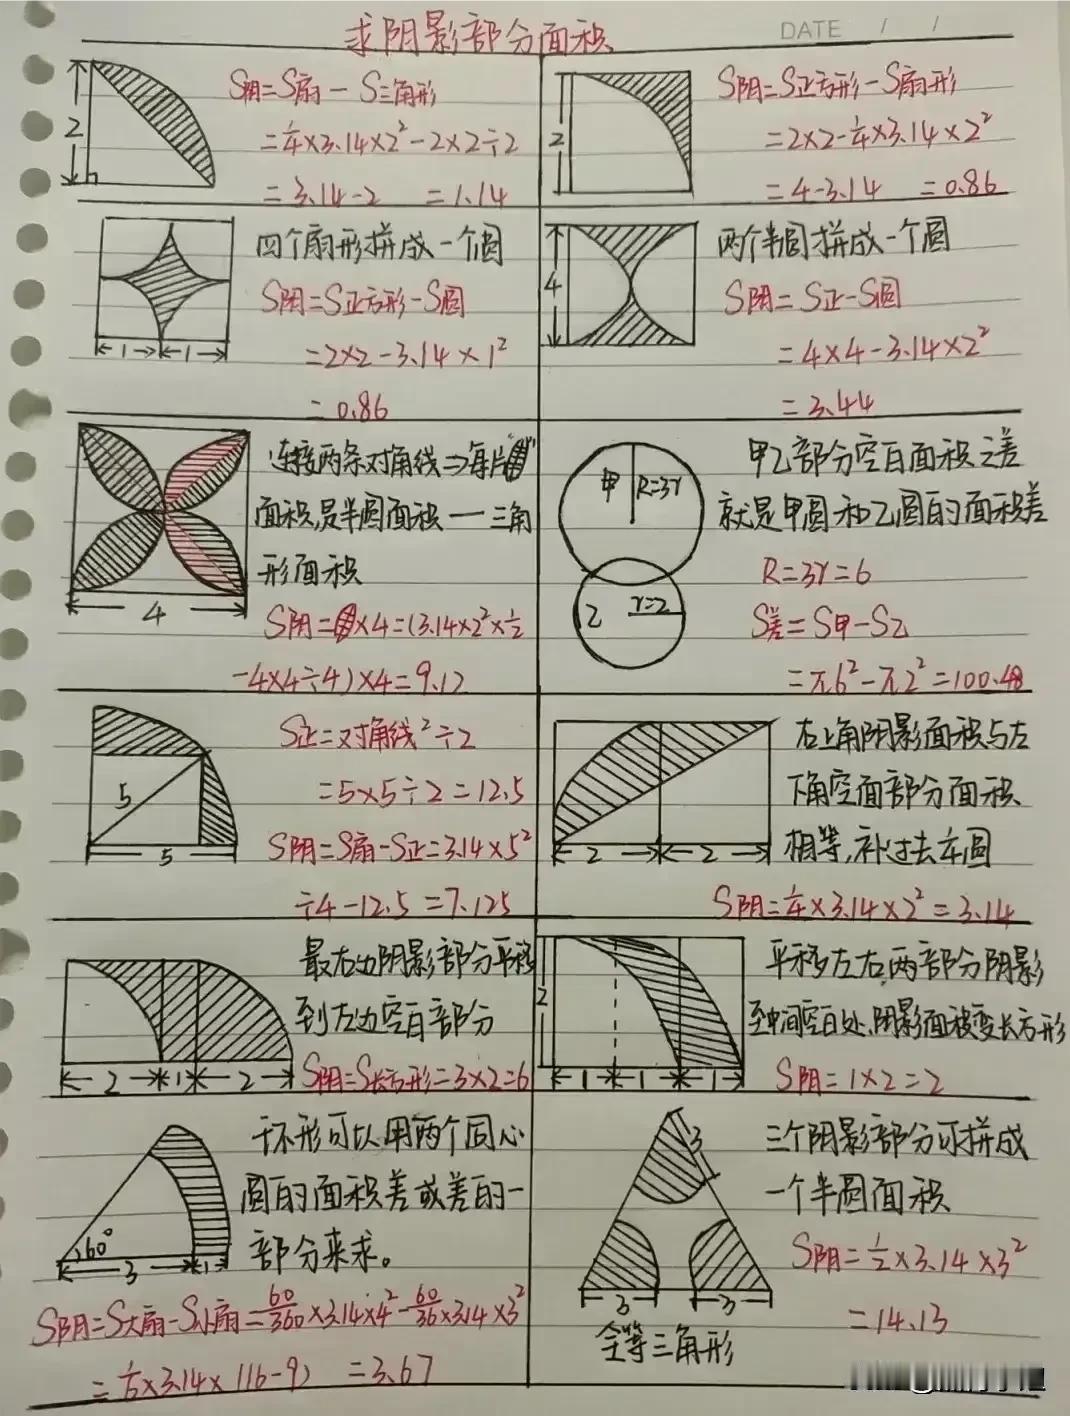 求阴影部分面积
DATE / /
2
S阴=S扇-S三角形
=¼×3.14×2²-2×2÷2
=3.14-2 =1.14
2
S阴=S正方形-S扇形
=2×2-¼×3.14×2²
=4-3.14 =0.86
1 1
四个扇形拼成一个圆
S阴=S正方形-S圆
=2×2-3.14×1²
=0.86
4
两个半圆拼成一个圆
S阴=S正-S圆
=4×4-3.14×2²
=3.44
4
连接两条对角线⇒每片
面积,是半圆面积一三角
形面积
S阴=×4=(3.14×2²×½
-4×4÷4)×4=9.12
甲 R=3r
乙 r=2
甲乙部分空白面积之差
就是甲圆和乙圆的面积差
R=3r=6
S差=S甲-S乙
=π6²-π2²=100.48
5
5
S正=对角线²÷2
=5×5÷2=12.5
S阴=S扇-S正=3.14×5²
÷4-12.5=7.125
2 2
右上角阴影面积与左
下角空面部分面积
相等,补过去车圆
S阴=¼×3.14×2²=3.14
2 1 2
最右边阴影部分平移
到左边空白部分
S阴=S长方形=3×2=6
2
1 1 1
平移左右两部分阴影
至中间空白处,阴影面积变长方形
S阴=1×2=2
60°
3 1
环形可以用两个同心
圆的面积差或差的一
部分来求。
S阴=S大扇-S小扇=60/360×3.14×4²-60/36×3.14×3²
=⅙×3.14×(16-9) =3.67
3
3 3
全等三角形
三个阴影部分可拼成
一个半圆面积
S阴=½×3.14×3²
=14.13